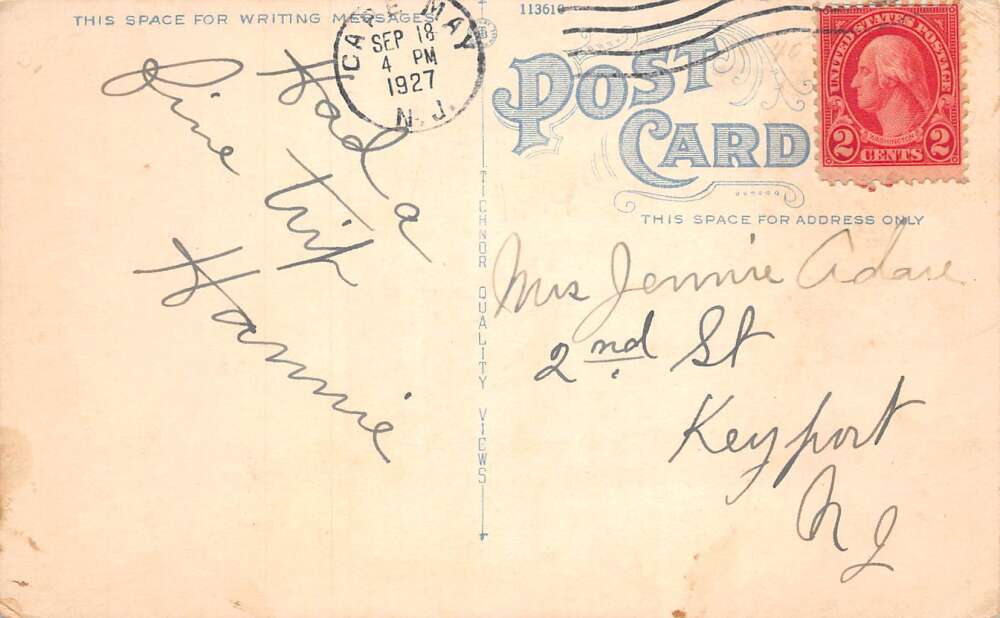 THIS SPACE FOR WRITING MESSAGES
CAPE MAY
SEP 18
4 PM
1927
N.J.
113610
POST CARD
UNITED STATES POSTAGE
WASHINGTON
2 CENTS 2
THIS SPACE FOR ADDRESS ONLY
TICHNOR QUALITY VIEWS
Had a
Fine Trip
Hannie
Mrs Jennie Adare
2nd St
Keyport
NJ